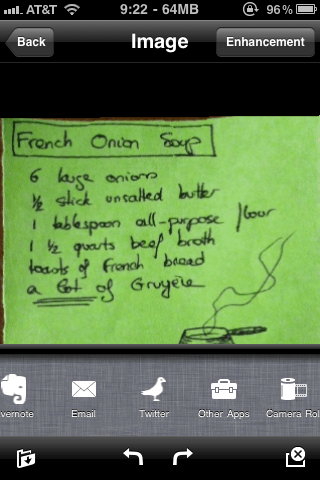 AT&T 9:22 - 64MB 96%
Back Image Enhancement
French Onion Soup
6 large onions
1/2 stick unsalted butter
1 tablespoon all-purpose flour
1 1/2 quarts beef broth
toasts of French bread
a lot of Gruyère
vernote Email Twitter Other Apps Camera Rol